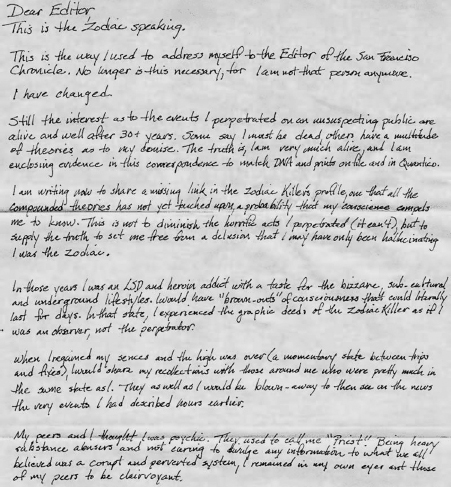 Dear Editor
This is the Zodiac speaking.
This is the way I used to address myself to the Editor of the San Francisco
Chronicle. No longer is this necessary, for I am not that person anymore.
I have changed.
Still the interest as to the events I perpetrated on an unsuspecting public are
alive and well after 30+ years. Some say I must be dead, others have a multitude
of theories as to my demise. The truth is, I am very much alive, and I am
enclosing evidence in this correspondence to match DNA and prints on file and in Quantico.
I am writing now to share a missing link in the Zodiac Killer's profile, one that all the
compounded theories has not yet touched upon, a probability that my conscience compels
me to know. This is not to diminish the horrific acts I perpetrated (it can't), but to
supply the truth to set me free from a delusion that I may have only been hallucinating
I was the Zodiac.
In those years I was an LSD and heroin addict with a taste for the bizarre, sub-cultural
and underground lifestyles. I would have "brown-outs" of consciousness that could literally
last for days. In that state, I experienced the graphic deeds of the Zodiac Killer as if I
was an observer, not the perpetrator.
When I regained my sences and the high was over (a momentary state between trips
and fixes), I would share my recollections with those around me who were pretty much in
the same state as I. They as well as I would be blown-away to then see on the news
the very events I had described hours earlier.
My peers and I thought I was psychic. They used to call me "Priest". Being heavy
substance abusers and not caring to divulge any information to what we all
believed was a corupt and perverted system, I remained in my own eyes and those
of my peers to be clairvoyant.